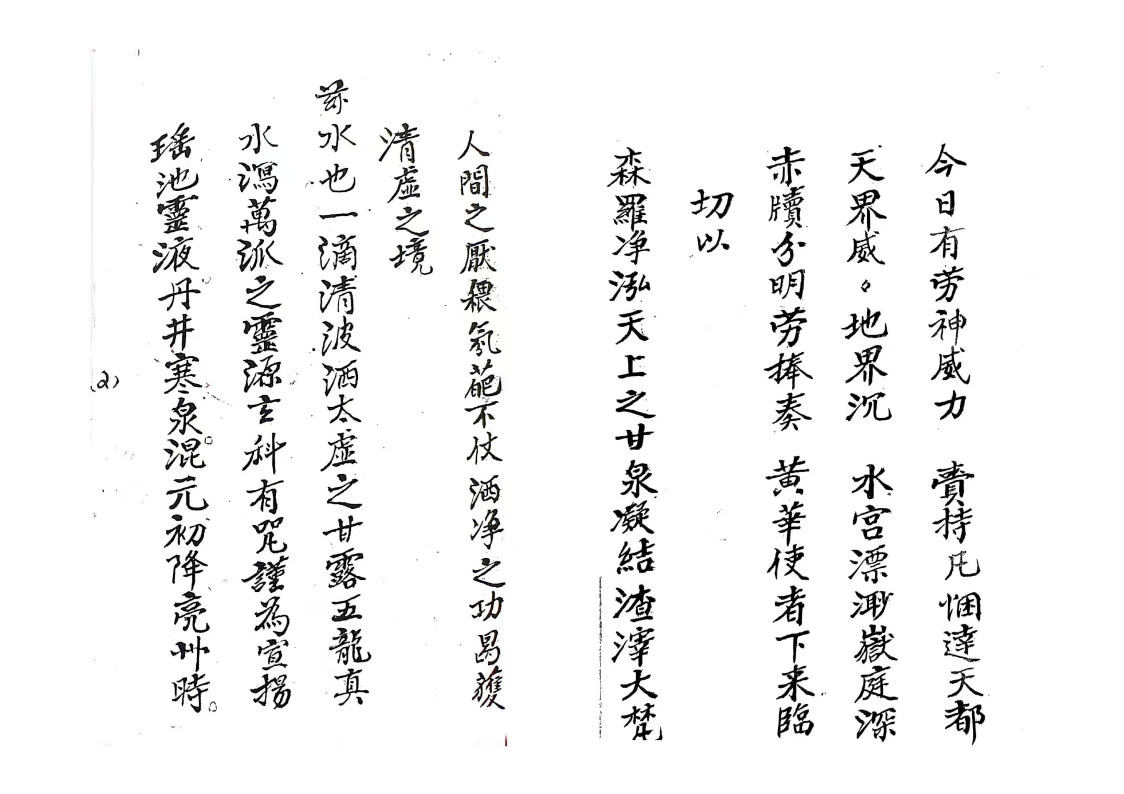 今日有劳神威力　賫持凡悃達天都
天界威〻地界沉　水宫漂渺嶽庭深
赤牘分明劳捧奏　黄華使者下来臨
切以
森羅净泓天上之甘泉凝結渣滓大梵
人間之厭穢氛葩不仗洒净之功曷獲
清虛之境
兹水也一滴清波洒太虛之甘露五龍真
水瀉萬派之靈源玄科有咒謹為宣揚
瑶池靈液。丹井寒泉。混元初降亮艸時。
(2)